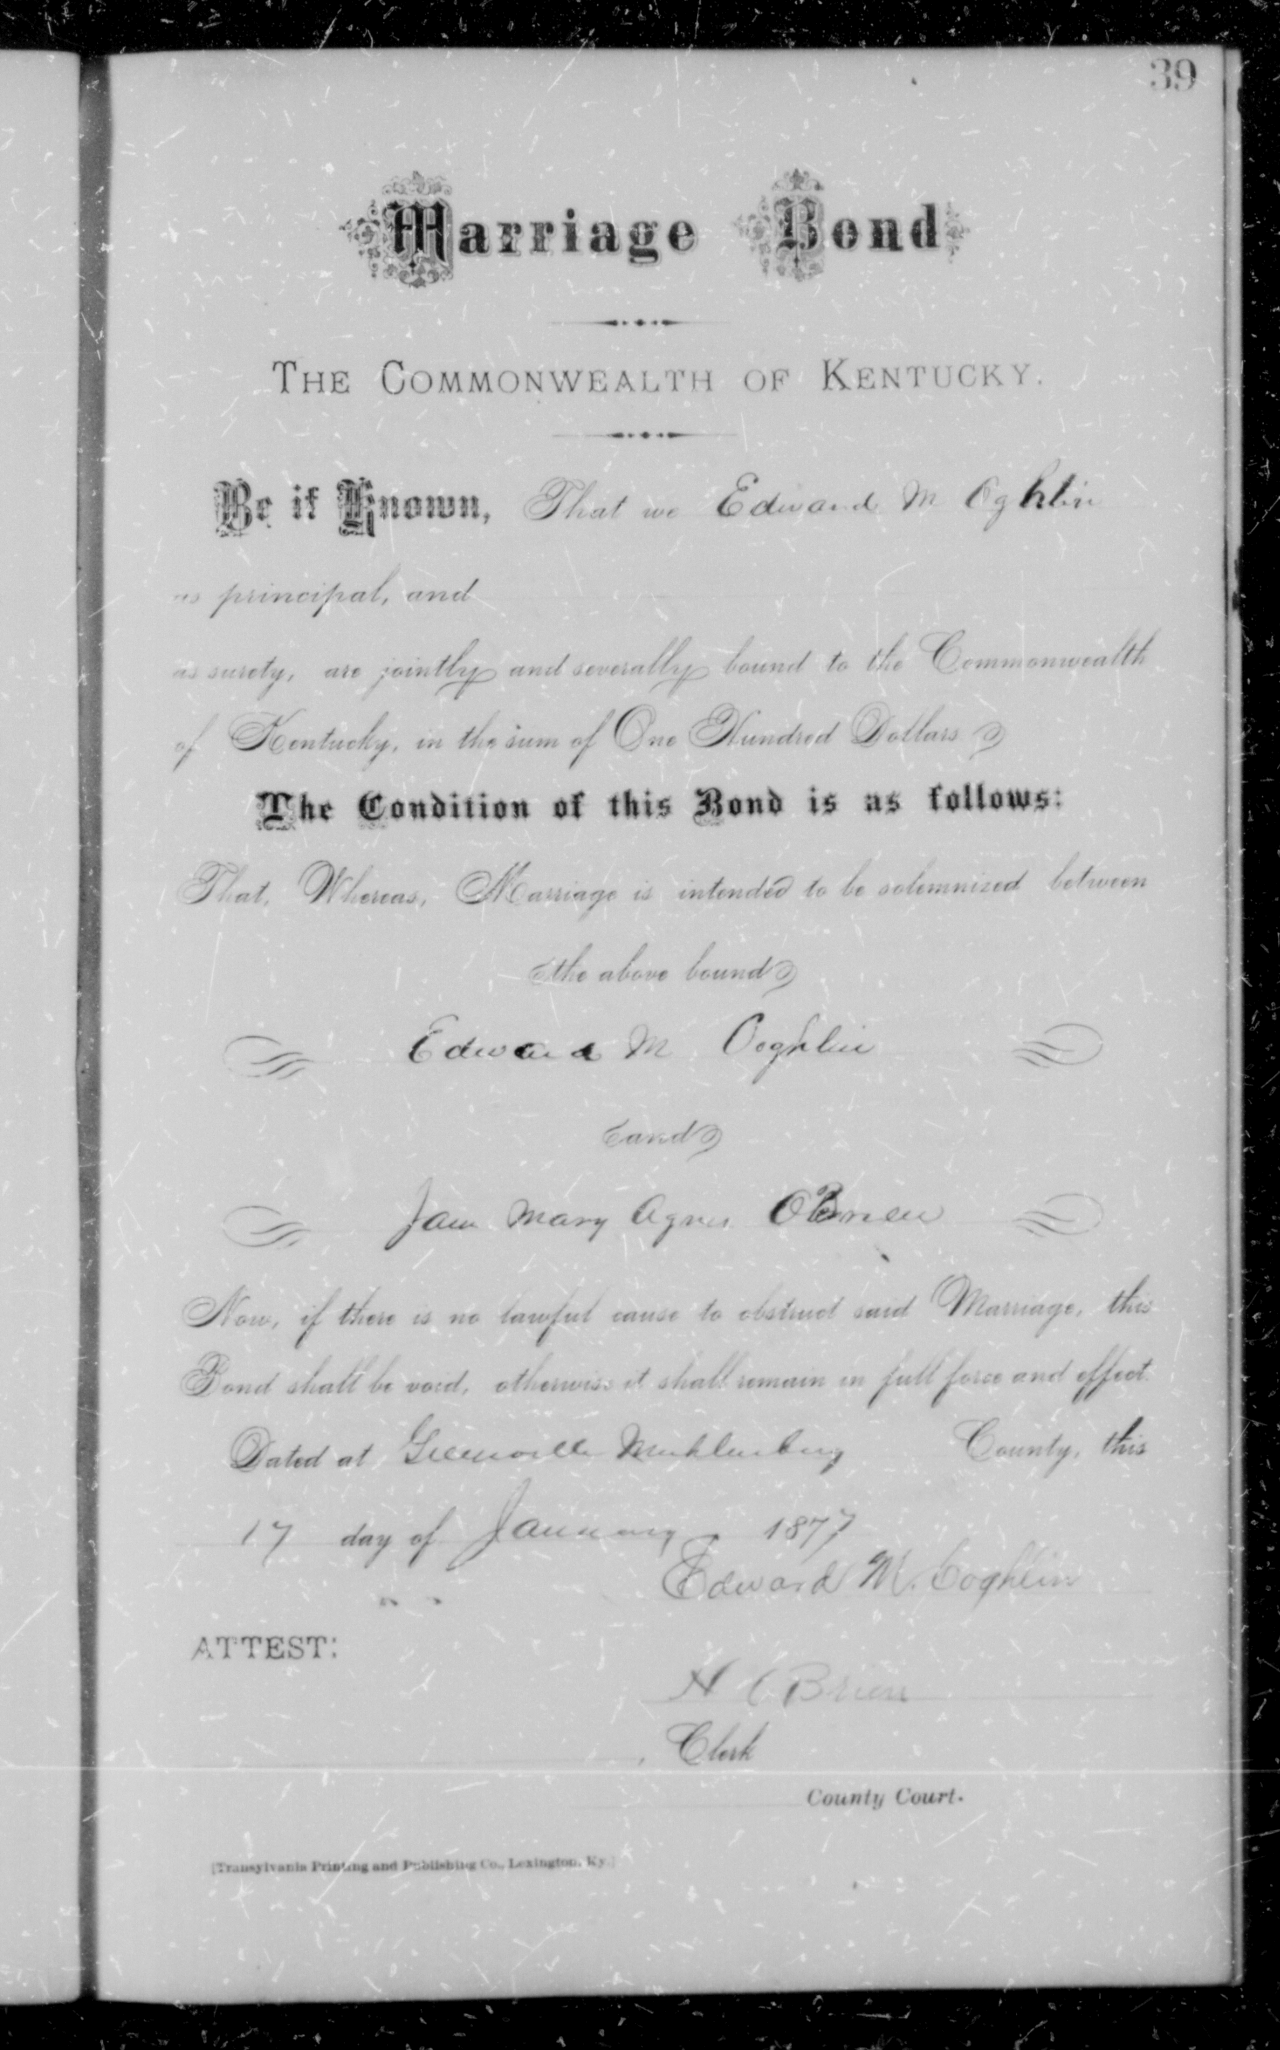 39
Marriage Bond
THE COMMONWEALTH OF KENTUCKY.
Be it Known, That we Edward M Oghlin
as principal, and
as surety, are jointly and severally bound to the Commonwealth
of Kentucky, in the sum of One Hundred Dollars
The Condition of this Bond is as follows:
That, Whereas, Marriage is intended to be solemnized between
the above bound
Edward M Coghlin
and
Jane Mary Agnes OBrien
Now, if there is no lawful cause to obstruct said Marriage, this
Bond shall be void, otherwise it shall remain in full force and effect.
Dated at Greenville Muhlenberg County, this
17 day of January 1877
Edward M. Coghlin
ATTEST:
H OBrien
, Clerk
County Court.
[Transylvania Printing and Publishing Co., Lexington, Ky.]